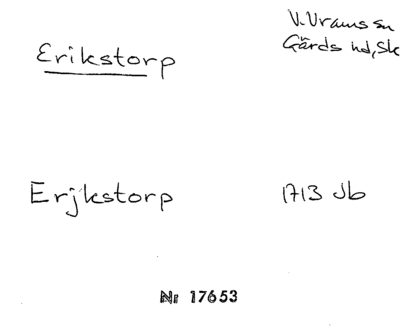 Erikstorp
V. Vrams sn
Gärds hd, Sk
Erjkstorp
1713 Jb
Nr 17653